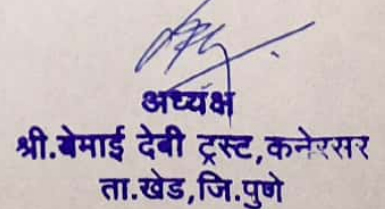 अध्यक्ष
श्री.बेमाई देवी ट्रस्ट,कनेरसर
ता.खेड,जि.पुणे